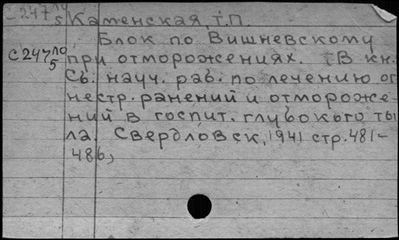 С247 10/5 Каменская, Т.П.
Блок по Вишневскому
С247 10/5 при отморожениях. (В кн.
Сб. науч. раб. по лечению ог
нестр. ранений и отмороже-
ний в госпит. глубокого ты
ла. Свердловск, 1941 стр. 481-
486,